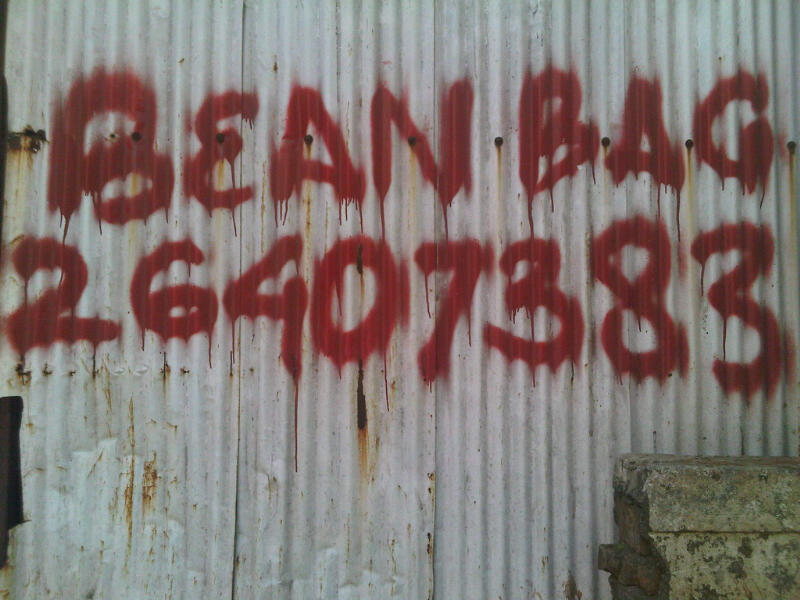 BEAN BAG
26407383